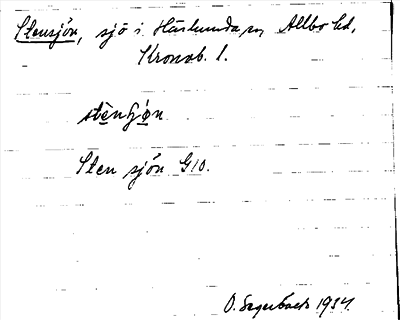 Stensjön, sjö i Härlunda sn, Allbo hd,
Kronob. l.
stèn$ǿn
Sten sjön G10.
D. Segerbäck 1934.